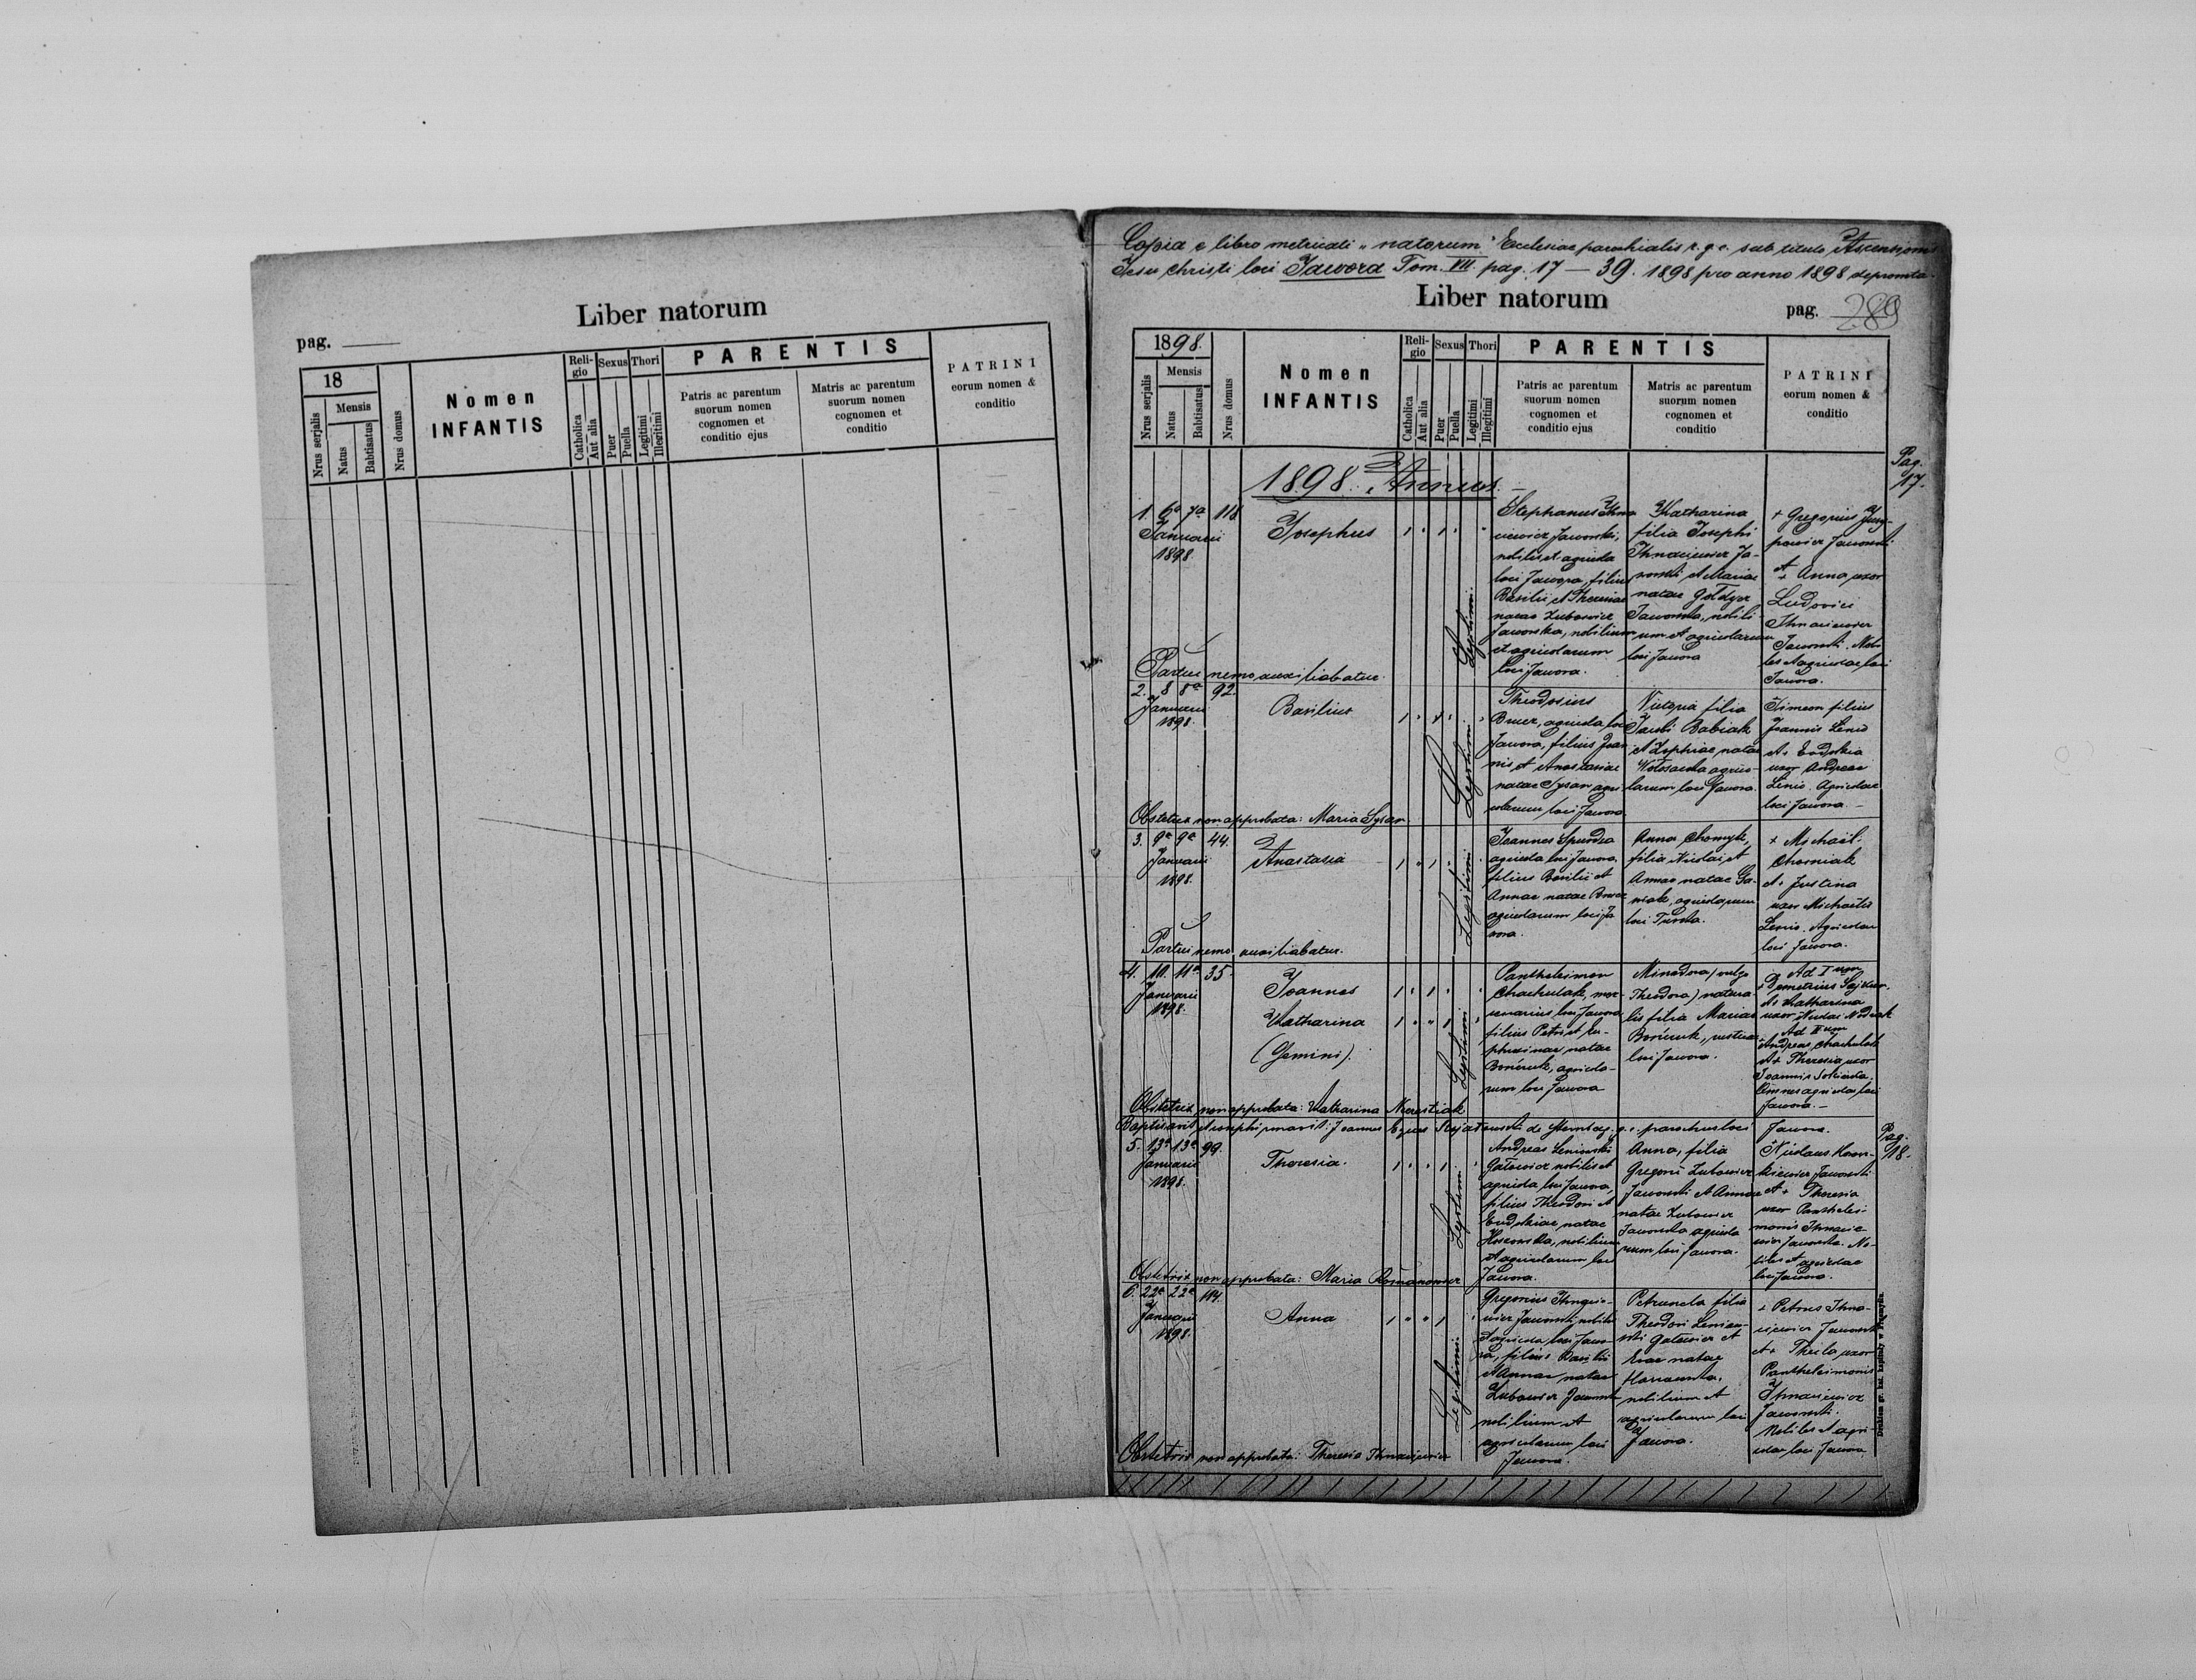 Liber natorum
pag.
18
Mensis
Nrus serjalis
Natus
Babtisatus
Nrus domus
Nomen
INFANTIS
Reli-
gio
Catholica
Aut alia
Sexus
Puer
Puella
Thori
Legitimi
Illegitimi
PARENTIS
Patris ac parentum
suorum nomen
cognomen et
conditio ejus
Matris ac parentum
suorum nomen
cognomen et
conditio
PATRINI
eorum nomen &
conditio
Copia e libro metricali "natorum" Ecclesiae parochialis r. g. c. sub titulo Ascensionis
Jesu Christi loci Jawora Tom. VII pag. 17 — 39. 1898 pro anno 1898 depromta.
Liber natorum
pag. 289
1898.
Mensis
Nrus serjalis
Natus
Babtisatus
Nrus domus
Nomen
INFANTIS
Reli-
gio
Catholica
Aut alia
Sexus
Puer
Puella
Thori
Legitimi
Illegitimi
PARENTIS
Patris ac parentum
suorum nomen
cognomen et
conditio ejus
Matris ac parentum
suorum nomen
cognomen et
conditio
PATRINI
eorum nomen &
conditio
Pag.
17.
1898. Annus.
1. 6a 7a 118
Januarii
1898.
Josephus
Legitimi
Stephanus Ihna
ciewicz Jaworski,
nobilis et agricola
loci Jawora, filius
Basilii et Theresiae
natae Zubowicz
Jaworska, nobilium
et agricolarum
loci Jawora.
Katharina
filia Josephi
Ihnaciewicz Ja-
worski et Mariae
natae
Jaworska, nobili
um et agricolarum
loci Jawora
+ Gregorius
Jaworski
et
+ Anna uxor
Ludovici
Ihnaciewicz
Jaworski. Nobi
les et agricolae loci
Jawora.
Partui nemo auxiliabatur.
2. 8 8a 92.
Januarii
1898.
Basilius
Legitimi
Theodosius
agricola loci
Jawora, filius Joan
nis et Anastasiae
natae Sysan agri
colarum loci Jawora
filia
Jacobi Babiak
et Zophiae natae
agrico-
larum loci Jawora.
Simeon filius
Joannis Lenio
et + Eudokia
uxor Andreae
Lenio. Agricolae
loci Jawora. —
Obstetrix non approbata: Maria Sysan
3. 9a 9a 44.
Januarii
1898.
Anastasia
Legitimi
Joannes
agricola loci Jawora
filius Basilii et
Annae natae
agricolarum loci Ja
wora.
Anna Chomyk,
filia Nicolai et
Annae natae Ga-
agricolarum
loci Turka.
+ Michaël
et + Justina
uxor Michaëlis
Lenio. Agricolae
loci Jawora.
Partui nemo auxiliabatur.
4. 10. 11a 35.
Januarii
1898.
Joannes
Katharina
(Gemini).
Legitimi
Pantheleimon
Chachulak, mer-
cenarius loci Jawora
filius Petri et Eu-
phrosinae natae
agricola-
rum loci Jawora
Minodora (vulgo
Theodora) natura
lis filia Mariae
rusticae
loci Jawora.
Ad I um
+ Demetrius
et + Katharina
uxor Nicolai
Ad II um
Andreas Chachulak
et + Theresia uxor
Joannis
Omnes agricolae loci
Jawora. —
Obstetrix non approbata: Katharina
Baptisavit et confirmavit: Joannes Eques g. c. parochus loci Jawora.
Pag.
18.
5. 13a 13a 99.
Januarii
1898.
Theresia.
Legitimi
Andreas Leniowski
Gałowicz nobilis et
agricola loci Jawora,
filius Theodori et
Eudokiae natae
nobilium
et agricolarum loci
Jawora.
Anna, filia
Gregorii Zubowicz
Jaworski et Annae
natae Zubowicz
Jaworska agricola
rum loci Jawora.
Nicolaus
Jaworski
et + Theresia
uxor Panthelei
monis Ihnacie-
wicz Jaworski. No-
biles et agricolae
loci Jawora.
Obstetrix non approbata: Maria Romanowicz
6. 22a 22a 114.
Januarii
1898.
Anna
Legitimi
Gregorius Ihnacie-
wicz Jaworski nobilis
et agricola, loci Jawo-
ra, filius Basilii
et Annae natae
Zubowicz Jaworska
nobilium et
agricolarum loci
Jawora.
Petrunela filia
Theodori Leniow-
ski Gałowicz et
Evae natae
nobilium et
agricolarum loci
Jawora.
+ Petrus Ihna-
ciewicz Jaworski
et + Thecla uxor
Pantheleimonis
Ihnaciewicz
Jaworski.
Nobiles et agri-
colae loci Jawora
Obstetrix non approbata: Theresia Ihnaciewicz